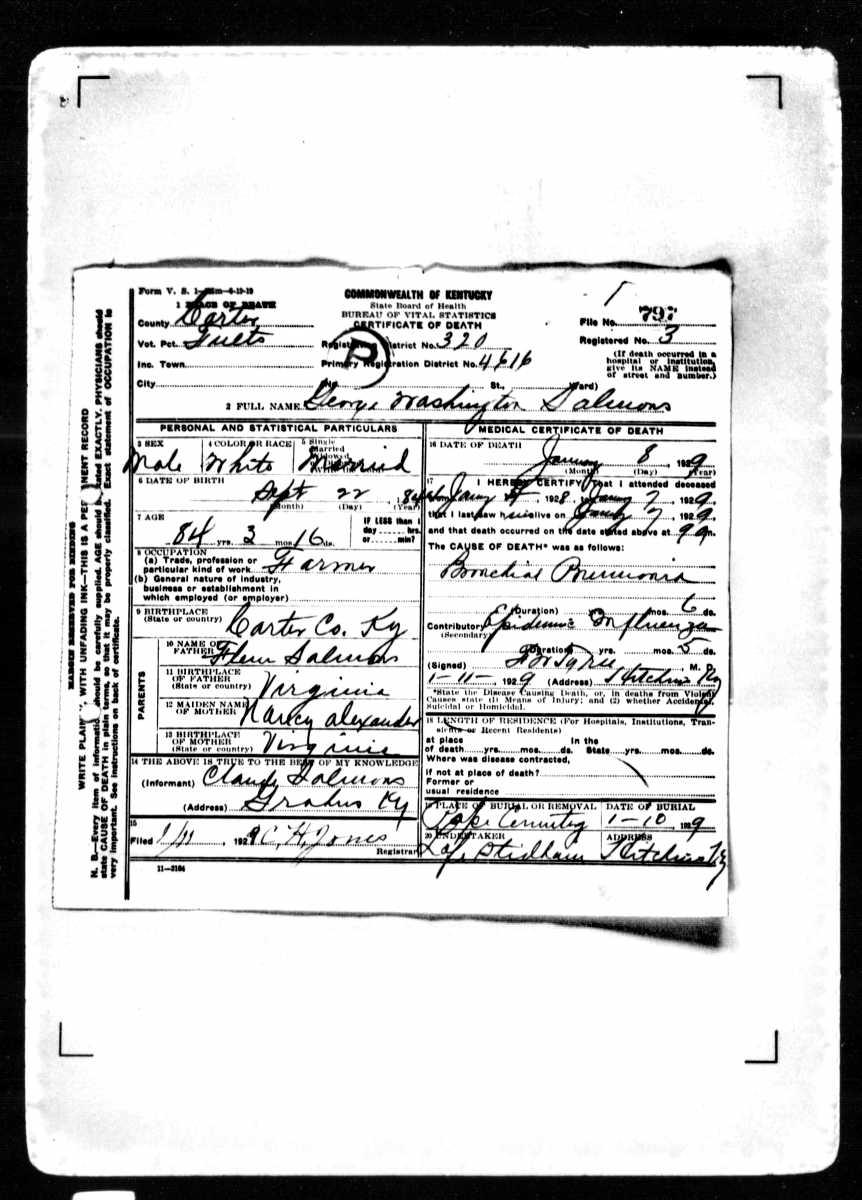 Form V. S. 1-
1 PLACE OF DEATH
County Carter
Vot. Pct.
Inc. Town
City
COMMONWEALTH OF KENTUCKY
State Board of Health
BUREAU OF VITAL STATISTICS
CERTIFICATE OF DEATH
Registration District No. 320
Primary Registration District No. 4616
No. St., Ward)
File No. 797
Registered No. 3
(If death occurred in a
hospital or institution,
give its NAME instead
of street and number.)
P
2 FULL NAME George Washington Salmons
PERSONAL AND STATISTICAL PARTICULARS
3 SEX
Male
4 COLOR OR RACE
White
5 Single
Married
Widowed
Married
6 DATE OF BIRTH
Sept 22
(Month) (Day) (Year)
7 AGE
84 yrs. 3 mos. 16 ds.
IF LESS than 1
day hrs.
or min?
8 OCCUPATION
(a) Trade, profession or
particular kind of work Farmer
(b) General nature of industry,
business or establishment in
which employed (or employer)
9 BIRTHPLACE
(State or country) Carter Co. Ky
PARENTS
10 NAME OF
FATHER Salmons
11 BIRTHPLACE
OF FATHER
(State or country) Virginia
12 MAIDEN NAME
OF MOTHER Nancy Alexander
13 BIRTHPLACE
OF MOTHER
(State or country) Virginia
14 THE ABOVE IS TRUE TO THE BEST OF MY KNOWLEDGE
(Informant) Claude Salmons
(Address) Grahn Ky
15
Filed 1/11, 1929 C. H. Jones
Registrar
11-3184
MEDICAL CERTIFICATE OF DEATH
16 DATE OF DEATH
January 8 1929
(Month) (Day) (Year)
17 I HEREBY CERTIFY, that I attended deceased
from Jany 1928, to Jany 7, 1929,
that I last saw h is alive on Jany 7, 1929,
and that death occurred on the date stated above at 9 a m.
The CAUSE OF DEATH* was as follows:
Bronchial Pneumonia
(Duration) yrs. mos. 6 ds.
Contributory Epidemic Influenza
(Secondary)
(Duration) yrs. mos. 5 ds.
(Signed) M. D.
1-11-, 1929 (Address) Hitchins Ky
*State the Disease Causing Death, or, in deaths from Violent
Causes state (1) Means of Injury; and (2) whether Accidental,
Suicidal or Homicidal.
18 LENGTH OF RESIDENCE (For Hospitals, Institutions, Tran-
sients or Recent Residents)
at place In the
of death yrs. mos. ds. State yrs. mos. ds.
Where was disease contracted,
if not at place of death?
Former or
usual residence
19 PLACE OF BURIAL OR REMOVAL
Cemetery
DATE OF BURIAL
1-10, 1929
20 UNDERTAKER
Stidham
ADDRESS
Hitchins Ky
MARGIN RESERVED FOR BINDING
WRITE PLAINLY, WITH UNFADING INK—THIS IS A PERMANENT RECORD
N. B.—Every item of information should be carefully supplied. AGE should be stated EXACTLY. PHYSICIANS should
state CAUSE OF DEATH in plain terms, so that it may be properly classified. Exact statement of OCCUPATION is
very important. See instructions on back of certificate.